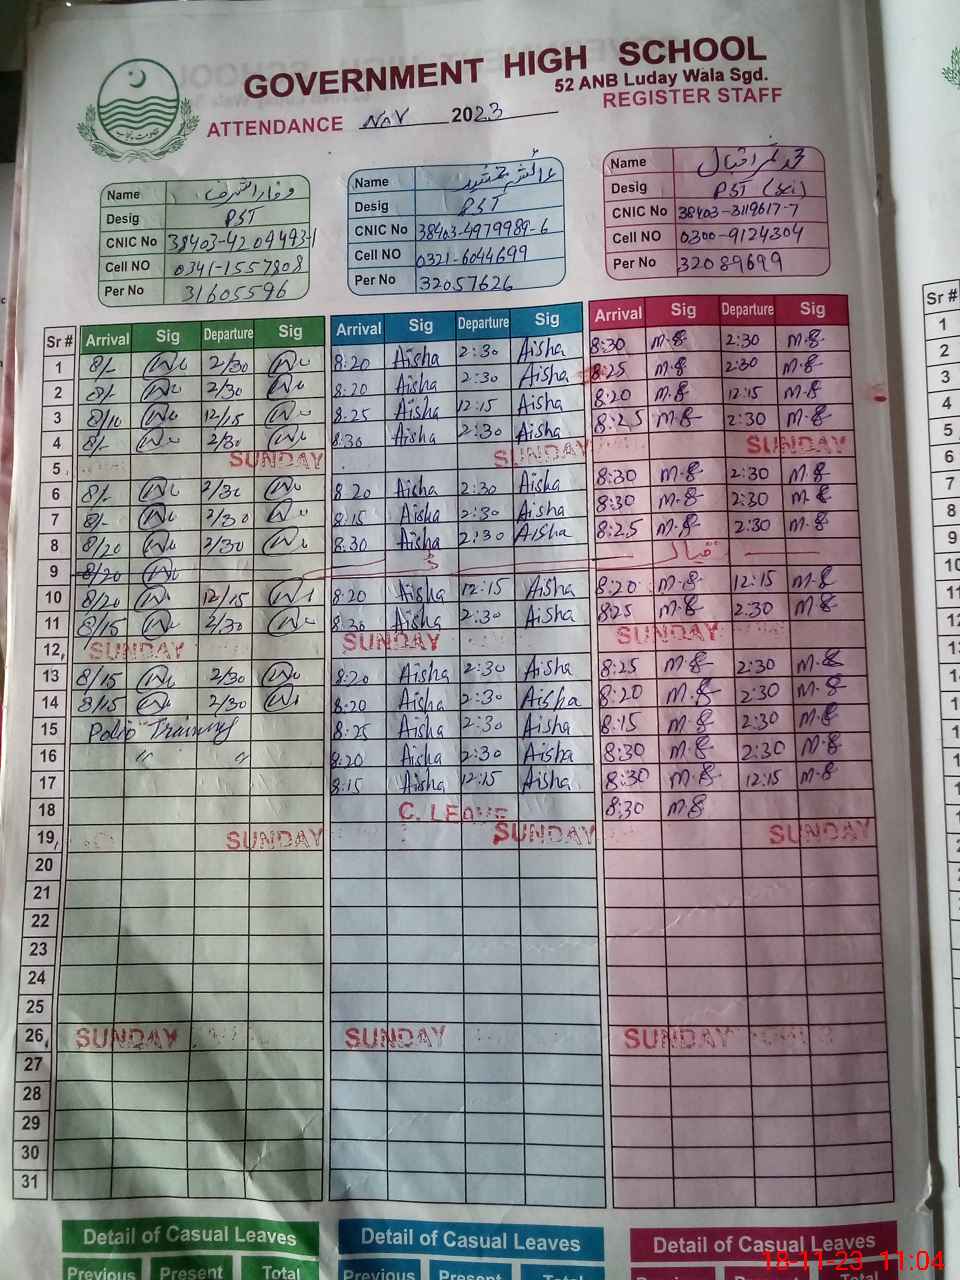 GOVERNMENT HIGH SCHOOL
52 ANB Luday Wala Sgd.
ATTENDANCE Nov 2023 REGISTER STAFF
Name وقار اشرف Name عائشہ جمشید Name محمد عمر اقبال
Desig PST Desig PST Desig PST (Sci)
CNIC No 38403-4204493-1 CNIC No 38403-4979989-6 CNIC No 38403-3119617-7
Cell NO 0341-1557808 Cell NO 0321-6044699 Cell NO 0300-9124304
Per No 31605596 Per No 32057626 Per No 32089699
Sr # Arrival Sig Departure Sig Arrival Sig Departure Sig Arrival Sig Departure Sig Sr #
1 8/- 2/30 8:20 Aisha 2:30 Aisha 8:30 M.8 2:30 M.8 1
2 8/- 2/30 8:20 Aisha 2:30 Aisha 8:25 M.8 2:30 M.8 2
3 8/10 12/15 8:25 Aisha 12:15 Aisha 8:20 M.8 12:15 M.8 3
4 8/- 2/30 8:30 Aisha 2:30 Aisha 8:25 M.8 2:30 M.8 4
5 SUNDAY SUNDAY SUNDAY 5
6 8/- 2/30 8:20 Aisha 2:30 Aisha 8:30 M.8 2:30 M.8 6
7 8/- 2/30 8:15 Aisha 2:30 Aisha 8:30 M.8 2:30 M.8 7
8 8/20 2/30 8:30 Aisha 2:30 Aisha 8:25 M.8 2:30 M.8 8
9 8/20 9
10 8/20 12/15 8:20 Aisha 12:15 Aisha 8:20 M.8 12:15 M.8 10
11 8/15 2/30 8:30 Aisha 2:30 Aisha 8:25 M.8 2:30 M.8 11
12 SUNDAY SUNDAY SUNDAY 12
13 8/15 2/30 8:20 Aisha 2:30 Aisha 8:25 M.8 2:30 M.8
14 8/15 2/30 8:20 Aisha 2:30 Aisha 8:20 M.8 2:30 M.8
15 Polio Training 8:25 Aisha 2:30 Aisha 8:15 M.8 2:30 M.8
16 " " 8:20 Aisha 2:30 Aisha 8:30 M.8 2:30 M.8
17 8:15 Aisha 12:15 Aisha 8:30 M.8 12:15 M.8
18 C. LEAVE 8:30 M.8
19 SUNDAY SUNDAY SUNDAY
20
21
22
23
24
25
26 SUNDAY SUNDAY SUNDAY
27
28
29
30
31
Detail of Casual Leaves Detail of Casual Leaves Detail of Casual Leaves
Previous Present Total Previous Present Total
18-11-23 11:04